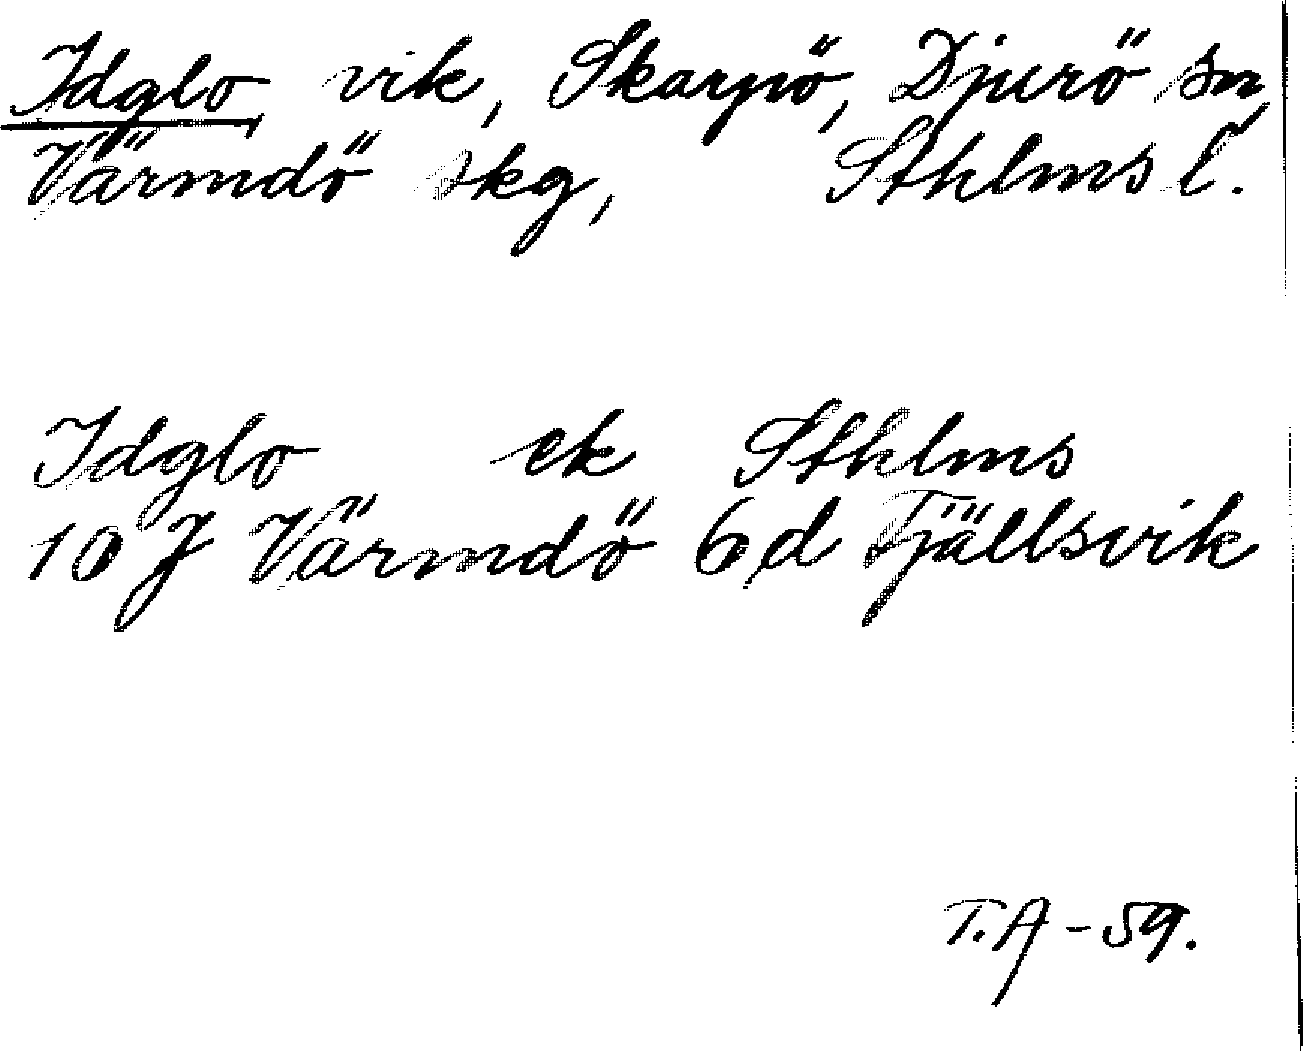 Idglo, vik, Skarpö, Djurö sn,
Värmdö skg, Sthlms l.
Idglo ek Sthlms
10 J Värmdö 6 d Fjällsvik
T.A -59.